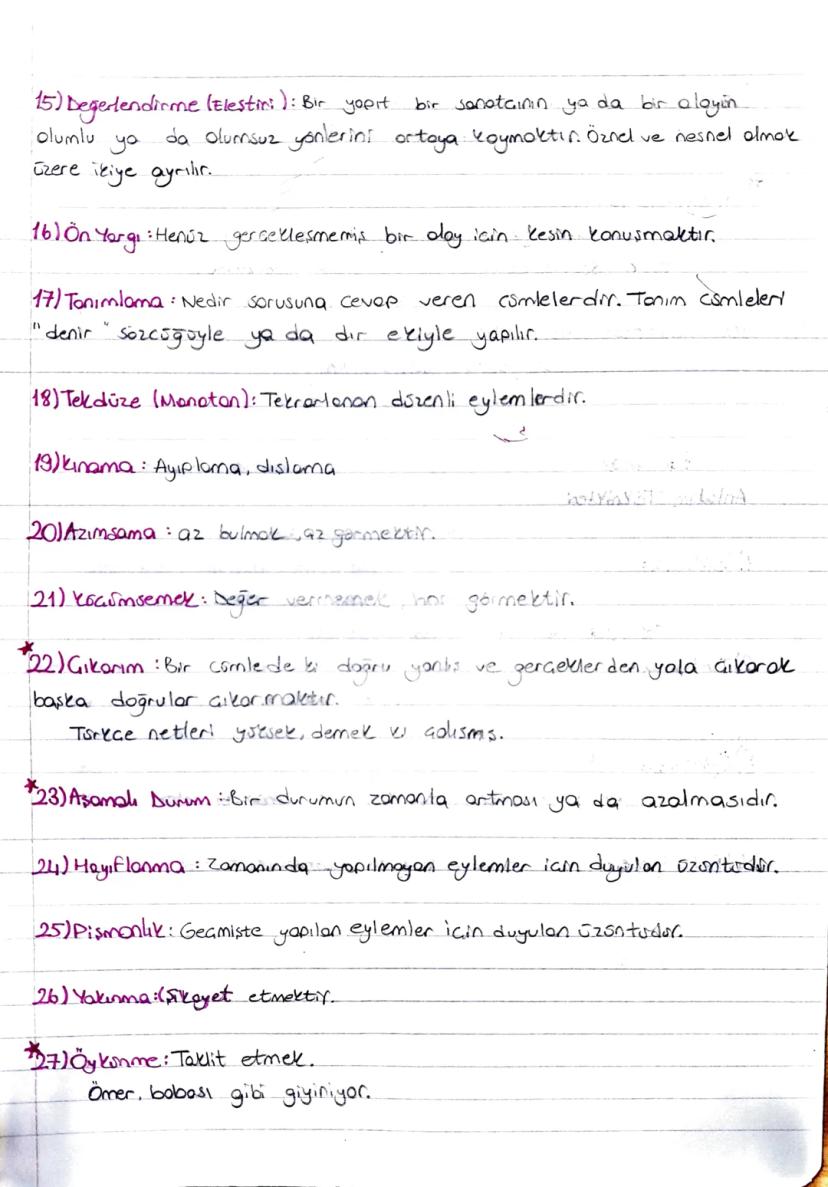 15) Değerlendirme (Eleştiri): Bir yapıt bir sanatçının ya da bir olayın
olumlu ya da olumsuz yönlerini ortaya koymaktır. Öznel ve nesnel olmak
üzere ikiye ayrılır.
16) Ön Yargı: Henüz gerçekleşmemiş bir olay için kesin konuşmaktır.
17) Tanımlama: Nedir sorusuna cevap veren cümlelerdir. Tanım cümleleri
"denir" sözcüğüyle ya da dır ekiyle yapılır.
18) Tekdüze (Monoton): Tekrarlanan düzenli eylemlerdir.
19) Kınama: Ayıplama, dışlama
20) Azımsama: az bulmak, az görmektir.
21) Küçümsemek: Değer vermemek, hor görmektir.
★22) Çıkarım: Bir cümlede ki doğru yanlış ve gerçeklerden yola çıkarak
başka doğrular çıkarmaktır.
Türkçe netleri yüksek, demek ki çalışmış.
★23) Aşamalı Durum: Bir durumun zamanla artması ya da azalmasıdır.
24) Hayıflanma: Zamanında yapılmayan eylemler için duyulan üzüntüdür.
25) Pişmanlık: Geçmişte yapılan eylemler için duyulan üzüntüdür.
26) Yakınma: (Şikayet etmektir.
★27) Öykünme: Taklit etmek.
Ömer, babası gibi giyiniyor.